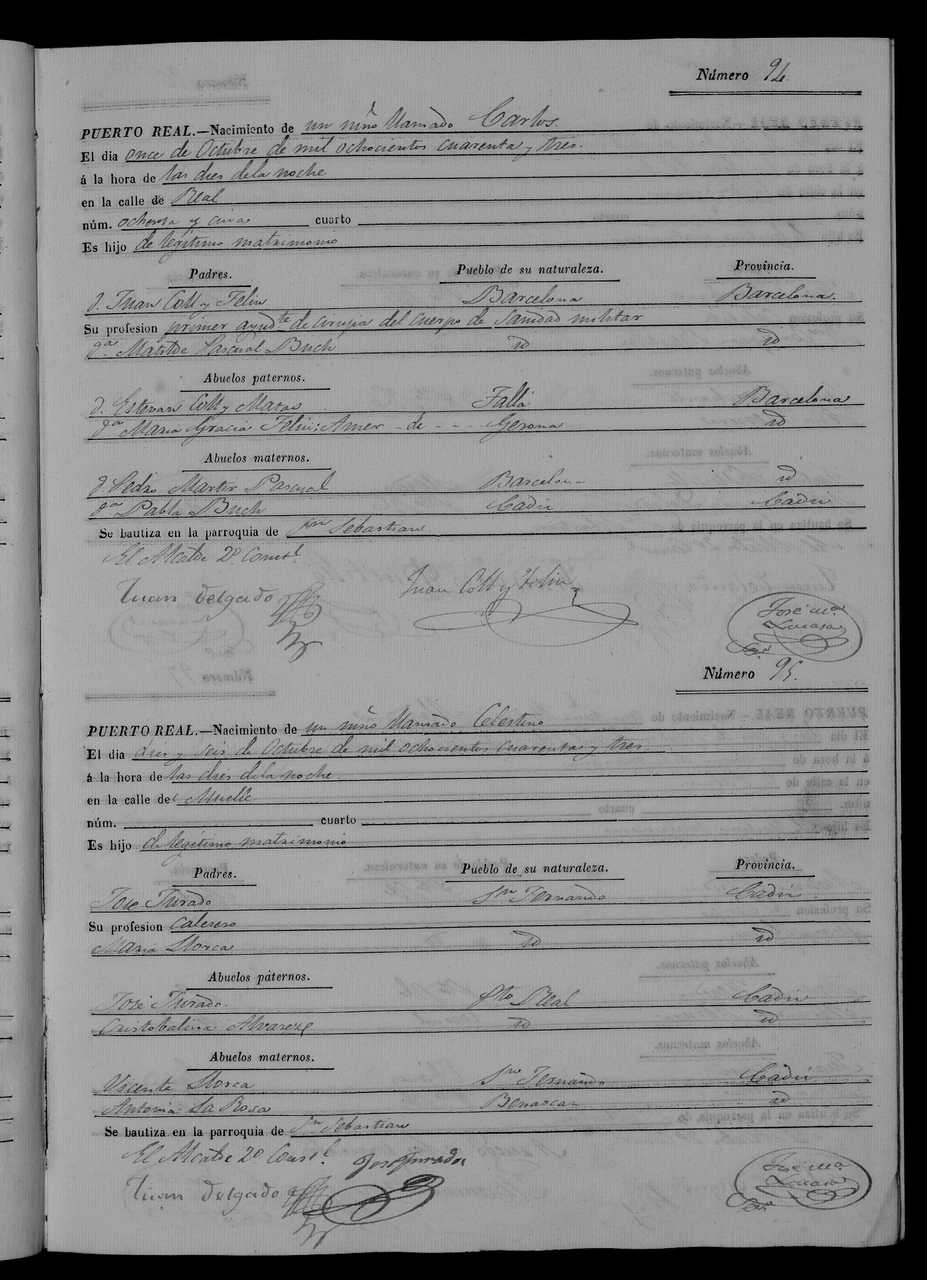 Número 94.
PUERTO REAL.—Nacimiento de un niño llamado Carlos.
El dia once de Octubre de mil ochocientos cuarenta y tres.
á la hora de las dies de la noche
en la calle de Real
núm. ochenta y cuarto
Es hijo de legitimo matrimonio
Padres. Pueblo de su naturaleza. Provincia.
d. Juan Coll y Feliu Barcelona Barcelona.
Su profesion primer ayudte de cirujia del cuerpo de sanidad militar
da. Matilde Pascual Buch id id
Abuelos paternos.
d. Estevan Coll y Matas Fallá Barcelona
da Maria Gracia Feliu: Amer - de - - - Gerona id
Abuelos maternos.
d. Pedro Martir Pascual Barcelona id
da Pabla Buch Cadiz Cadiz
Se bautiza en la parroquia de Sn Sebastian
El Alcalde 2º Constl.
Juan Delgado Juan Coll y Feliu José Ma.
Número 95.
PUERTO REAL.—Nacimiento de un niño llamado Celestino
El dia dies y seis de Octubre de mil ochocientos cuarenta y tres
á la hora de las dies de la noche
en la calle del Muelle
núm. cuarto
Es hijo de legitimo matrimonio
Padres. Pueblo de su naturaleza. Provincia.
Jose Jurado Sn Fernando Cadiz
Su profesion Calesero
Maria Llorca id id
Abuelos páternos.
José Jurado Pto Real Cadiz
Cristobalina Alvarez id id
Abuelos maternos.
Vicente Llorca Sn Fernando Cadiz
Antonia La Rosa id
Se bautiza en la parroquia de Sn Sebastian
El Alcalde 2º Constl. Jose Jurado
Juan Delgado José Ma.